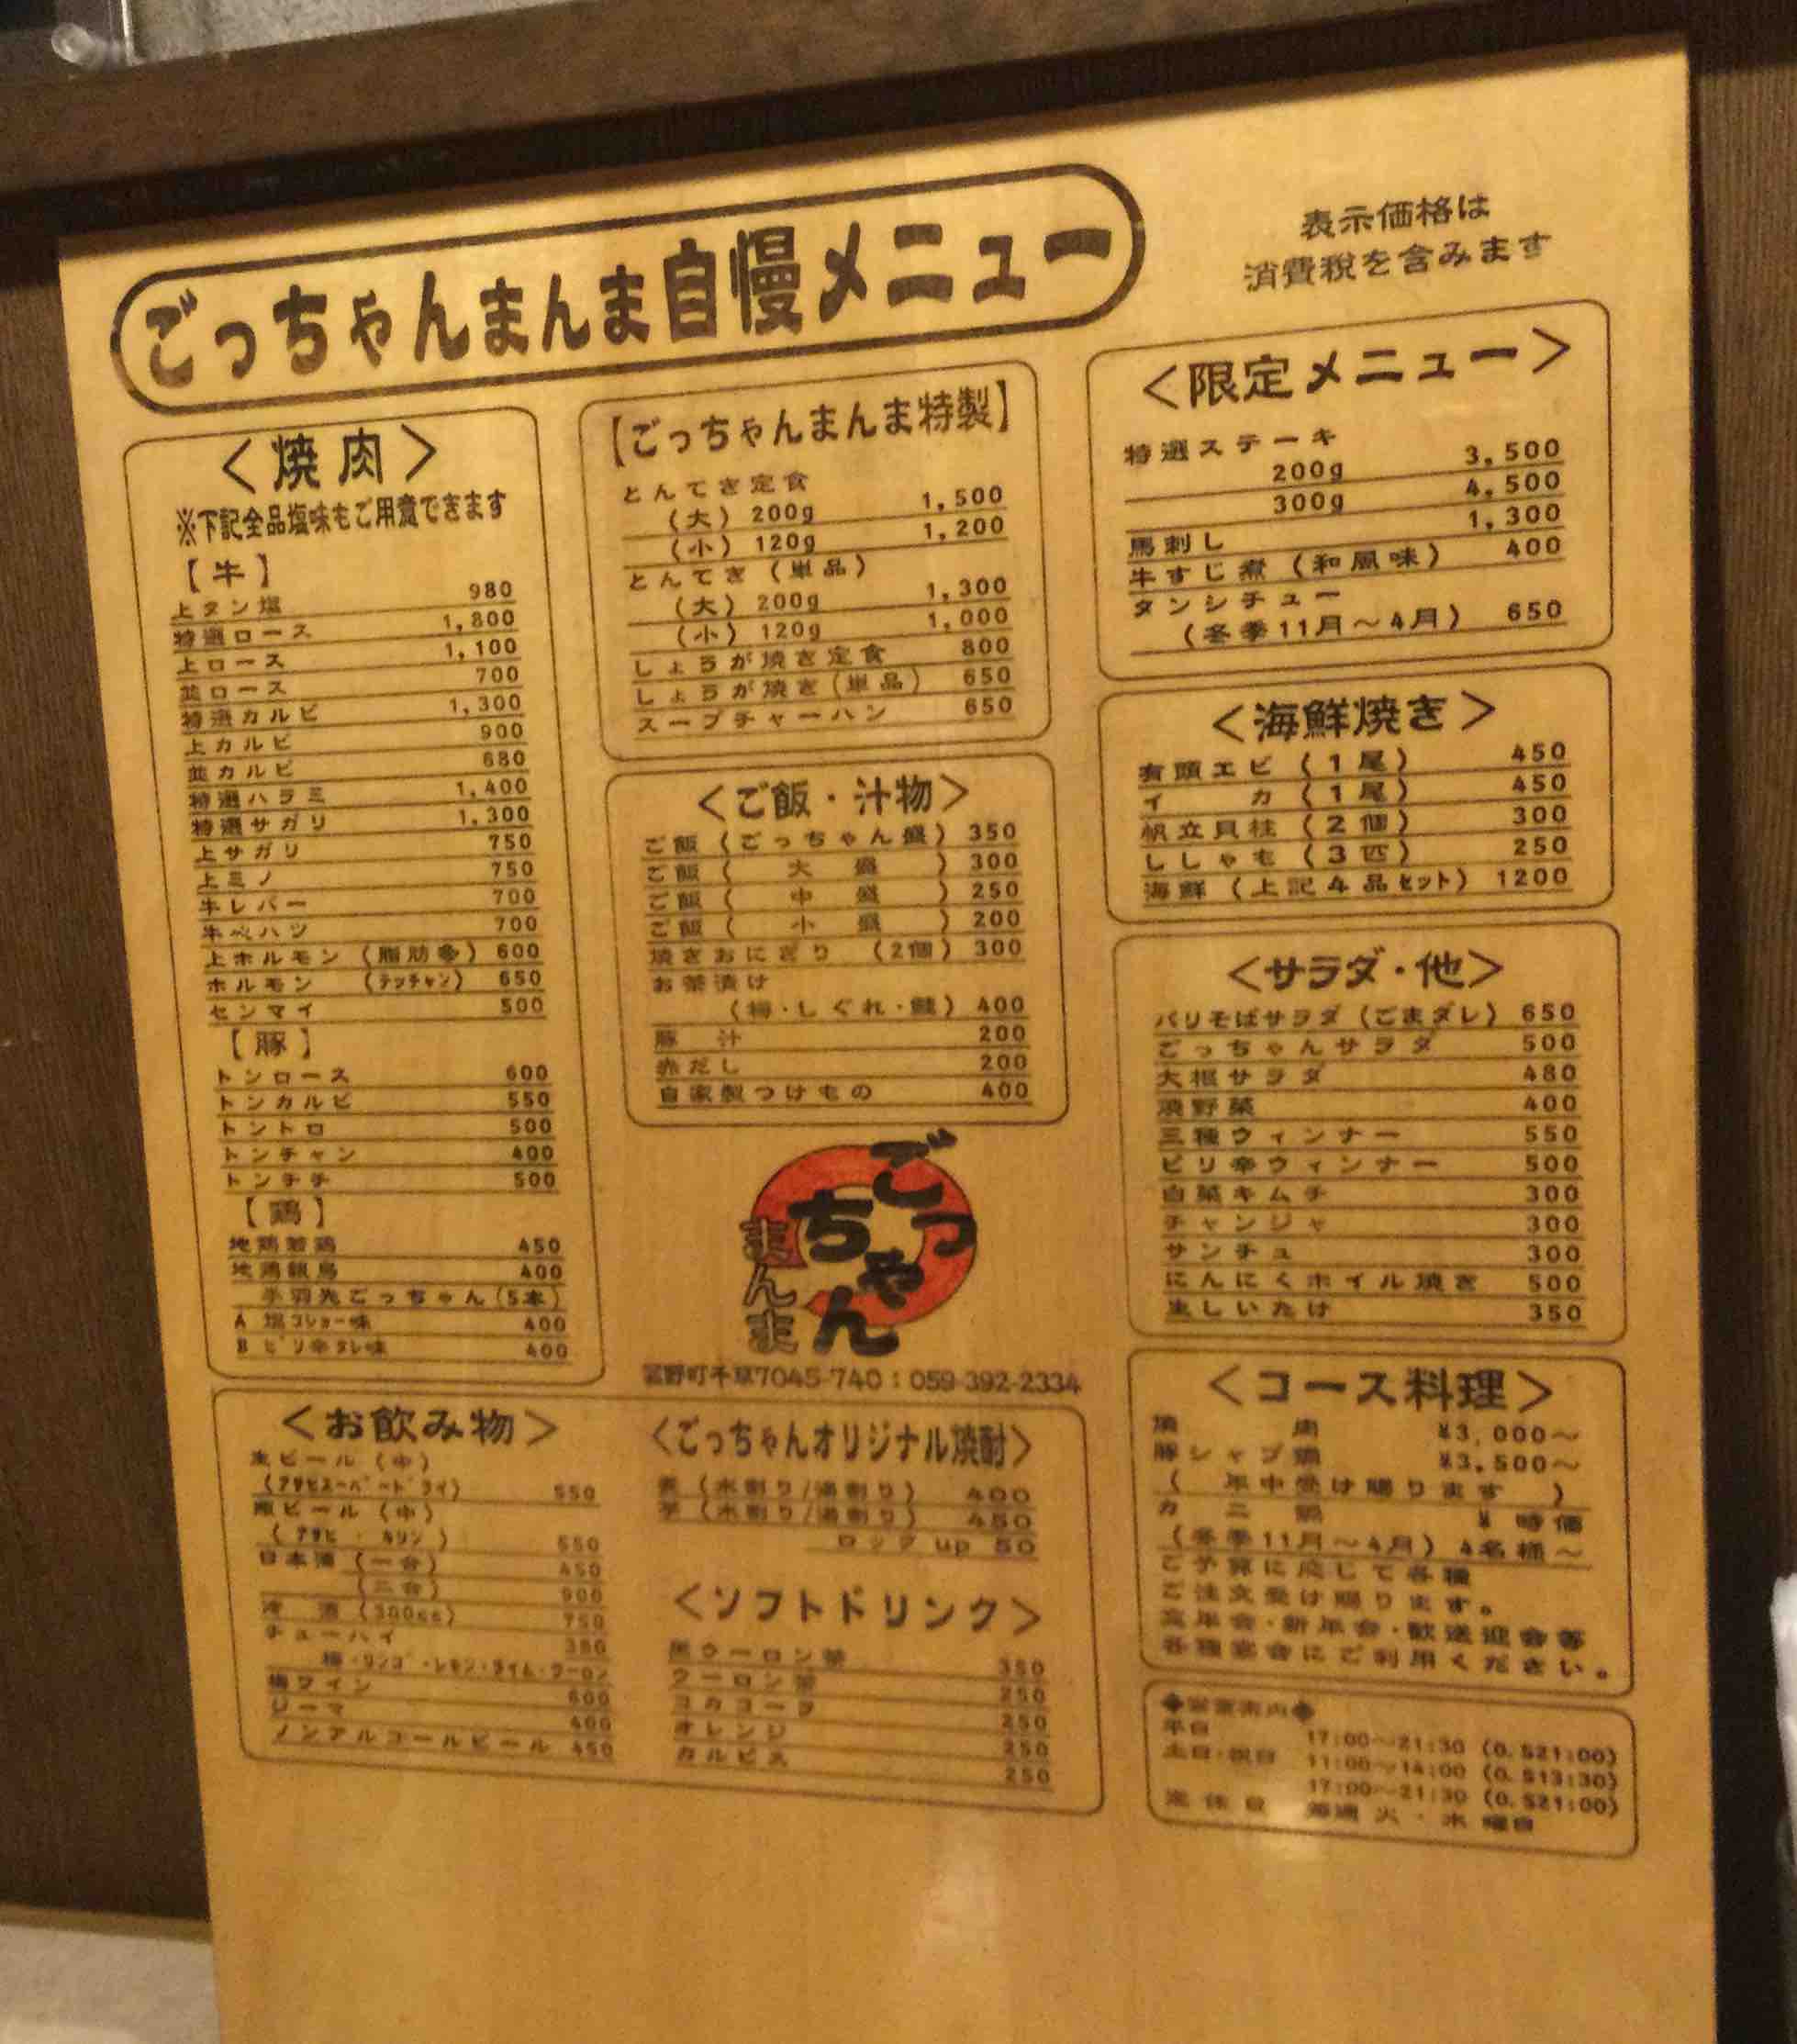 ごっちゃんまんま自慢メニュー
表示価格は
消費税を含みます
＜焼肉＞
※下記全品塩味もご用意できます
【牛】
上タン塩 980
特選ロース 1,800
上ロース 1,100
並ロース 700
特選カルビ 1,300
上カルビ 900
並カルビ 680
特選ハラミ 1,400
特選サガリ 1,300
上サガリ 750
上ミノ 750
牛レバー 700
牛ハツ 700
上ホルモン（脂肪多）600
ホルモン（テッチャン）650
センマイ 500
【豚】
トンロース 600
トンカルビ 550
トントロ 500
トンチャン 400
トンチチ 500
【鶏】
地鶏若鶏 450
地鶏親鳥 400
手羽先ごっちゃん（5本）
A 塩コショー味 400
B ピリ辛タレ味 400
【ごっちゃんまんま特製】
とんてき定食
（大）200g 1,500
（小）120g 1,200
とんてき（単品）
（大）200g 1,300
（小）120g 1,000
しょうが焼き定食 800
しょうが焼き（単品） 650
スープチャーハン 650
＜ご飯・汁物＞
ご飯（ごっちゃん盛）350
ご飯（ 大 盛 ）300
ご飯（ 中 盛 ）250
ご飯（ 小 盛 ）200
焼きおにぎり（2個）300
お茶漬け
（梅・しぐれ・鮭）400
豚 汁 200
赤だし 200
自家製つけもの 400
ごっちゃん
まんま
菰野町千草7045-740：059-392-2334
＜限定メニュー＞
特選ステーキ
200g 3,500
300g 4,500
馬刺し 1,300
牛すじ煮（和風味） 400
タンシチュー
（冬季11月～4月） 650
＜海鮮焼き＞
有頭エビ（1尾） 450
イ カ（1尾） 450
帆立貝柱（2個） 300
ししゃも（3匹） 250
海鮮（上記4品セット）1200
＜サラダ・他＞
パリそばサラダ（ごまダレ）650
ごっちゃんサラダ 500
大根サラダ 480
焼野菜 400
三種ウィンナー 550
ピリ辛ウィンナー 500
白菜キムチ 300
チャンジャ 300
サンチュ 300
にんにくホイル焼き 500
生しいたけ 350
＜コース料理＞
焼 肉 ¥3,000～
豚シャブ鍋 ¥3,500～
（ 年中受け賜ります ）
カ ニ 鍋 ¥ 時価
（冬季11月～4月）4名様～
ご予算に応じて各種
ご注文受け賜ります。
忘年会・新年会・歓送迎会等
各種宴会にご利用ください。
◆営業案内◆
平日 17:00～21:30（O.S21:00）
土日・祝日 11:00～14:00（O.S13:30）
17:00～21:30（O.S21:00）
定休日 毎週 火・水 曜日
＜お飲み物＞
生ビール（中）
（アサヒスーパードライ） 550
瓶ビール（中）
（アサヒ・キリン） 550
日本酒（一合） 450
（二合） 900
冷 酒（300cc） 750
チューハイ 380
梅・リンゴ・レモン・ライム・ウーロン
梅ワイン 600
ジーマ 400
ノンアルコールビール 450
＜ごっちゃんオリジナル焼酎＞
麦（水割り/湯割り） 400
芋（水割り/湯割り） 450
ロック up 50
＜ソフトドリンク＞
黒ウーロン茶 350
ウーロン茶 250
コカコーラ 250
オレンジ 250
カルピス 250